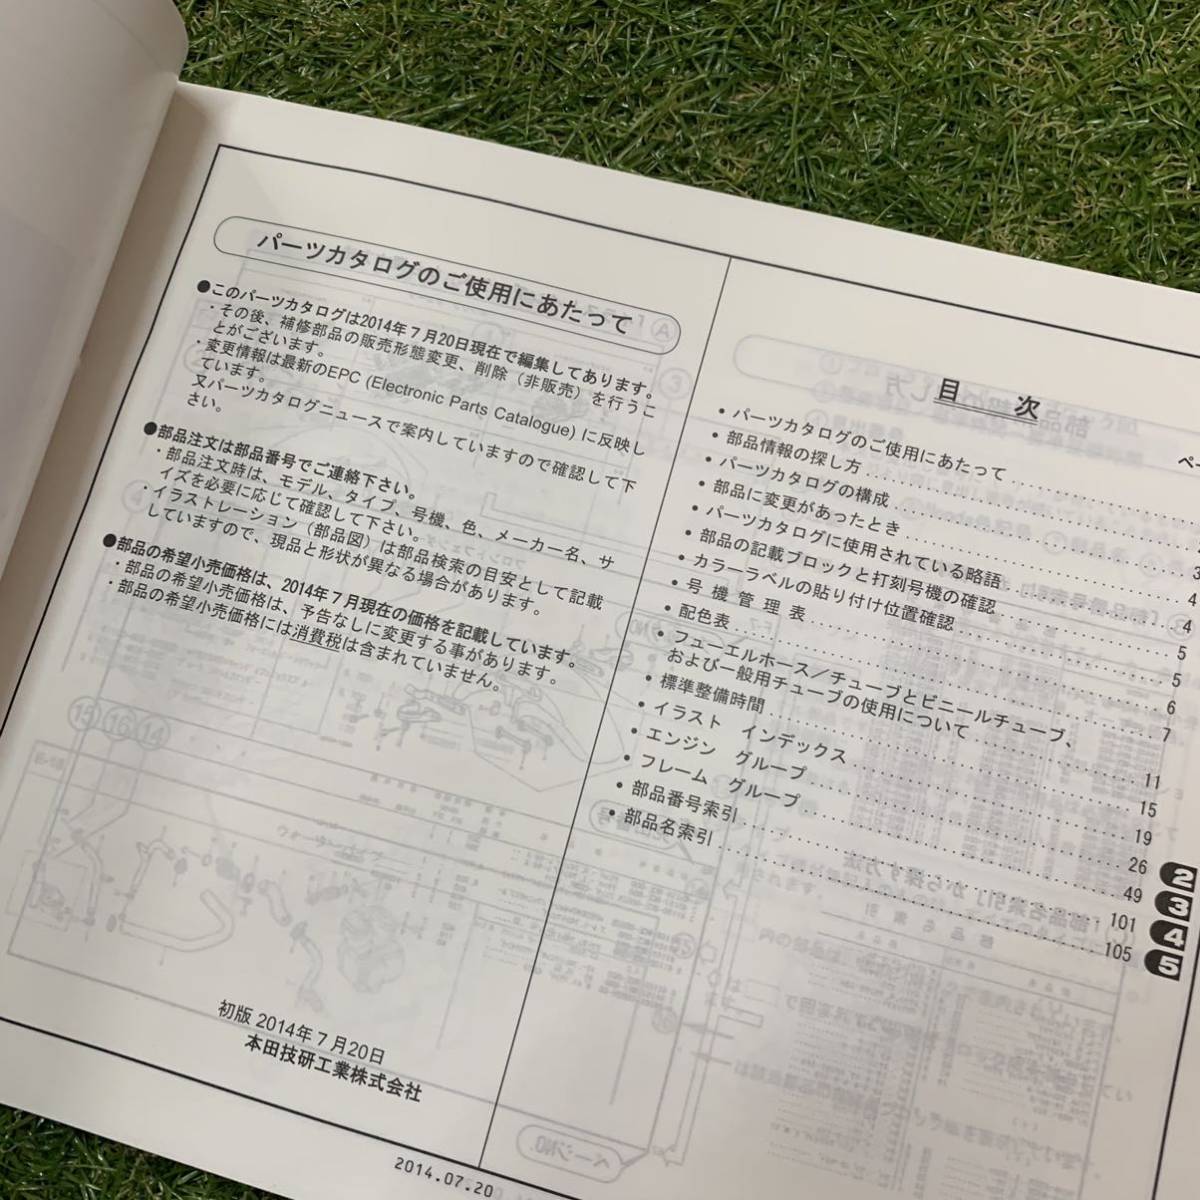 パーツカタログのご使用にあたって
●このパーツカタログは2014年7月20日現在で編集してあります。
・その後、補修部品の販売形態変更、削除（非販売）を行うこ
とがございます。
・変更情報は最新のEPC (Electronic Parts Catalogue) に反映し
ています。
又パーツカタログニュースで案内していますので確認して下
さい。
●部品注文は部品番号でご連絡下さい。
・部品注文時は、モデル、タイプ、号機、色、メーカー名、サ
イズを必要に応じて確認して下さい。
・イラストレーション（部品図）は部品検索の目安として記載
していますので、現品と形状が異なる場合があります。
●部品の希望小売価格は、2014年7月現在の価格を記載しています。
・部品の希望小売価格は、予告なしに変更する事があります。
・部品の希望小売価格には消費税は含まれていません。
初版 2014年7月20日
本田技研工業株式会社
2014.07.20
目 次
• パーツカタログのご使用にあたって
• 部品情報の探し方
• パーツカタログの構成
• 部品に変更があったとき 3
• パーツカタログに使用されている略語 4
• 部品の記載ブロックと打刻号機の確認 4
• カラーラベルの貼り付け位置確認 5
• 号機管理表 5
• 配色表 6
• フューエルホース／チューブとビニールチューブ、
および一般用チューブの使用について 7
• 標準整備時間 11
• イラスト インデックス 15
• エンジン グループ 19
• フレーム グループ 26 2
• 部品番号索引 49 3
• 部品名索引 101 4
105 5